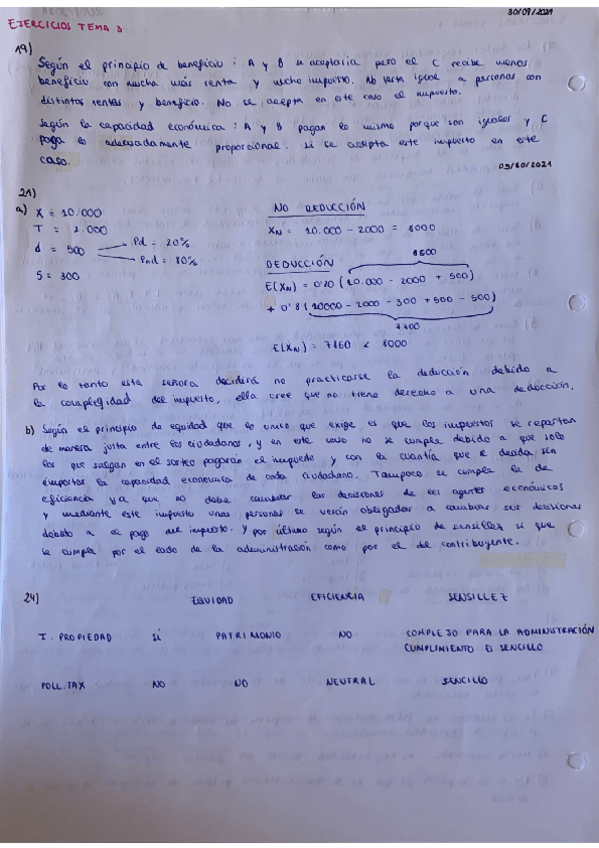 30/09/2021
EJERCICIOS TEMA 3
19)
Según el principio de beneficio: A y B se aceptaría pero el C recibe menos
beneficio con mucha más renta y mucho impuesto. No sería igual a personas con
distintas rentas y beneficio. No se acepta en este caso el impuesto.
Según la capacidad económica: A y B pagan lo mismo porque son iguales y C
paga lo adecuadamente proporcional. Si se acepta este impuesto en este
caso.
03/10/2021
21)
a) X = 10.000
T = 2.000
d = 500
Pd = 20%
Pnd = 80%
S = 300
NO DEDUCCIÓN
XN = 10.000 - 2000 = 8000
DEDUCCIÓN
8500
E(XN) = 0'20 (10.000 - 2000 + 500)
+ 0'8 (10000 - 2000 - 300 + 500 - 500)
7700
E(XN) = 7860 < 8000
Por lo tanto esta señora decidirá no practicarse la deducción debido a
la complejidad del impuesto, ella cree que no tiene derecho a una deducción.
b) Según el principio de equidad que lo unico que exige es que los impuestos se repartan
de manera justa entre los ciudadanos, y en este caso no se cumple debido a que solo
los que salgan en el sorteo pagarán el impuesto y con la cuantía que se decida sin
importar la capacidad economica de cada ciudadano. Tampoco se cumple la de
eficiencia ya que no debe cambiar las decisiones de los agentes económicos
y mediante este impuesto unas personas se verán obligadas a cambiar sus decisiones
debido a el pago del impuesto. Y por último según el principio de sensillez si que
se cumple por el lado de la administración como por el del contribuyente.
24)
EQUIDAD EFICIENCIA SENSILLEZ
I. PROPIEDAD SÍ PATRIMONIO NO COMPLEJO PARA LA ADMINISTRACIÓN
CUMPLIMIENTO ES SENCILLO
POLL.TAX NO NO NEUTRAL SENCILLO